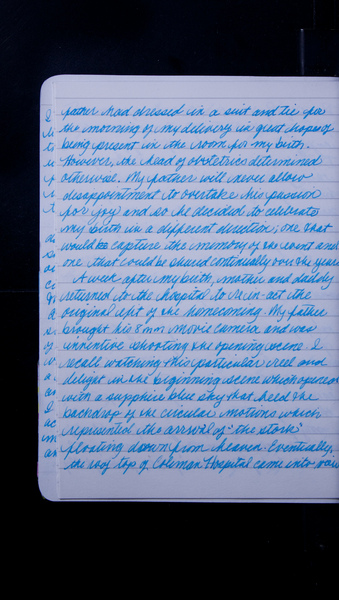 father had dressed in a suit and tie for
the morning of my delivery in great hopes of
being present in the room for my birth.
However, the head of obstetrics determined
otherwise. My father will never allow
disappointment to overtake his passion
for joy and so he decided to celebrate
my birth in a different direction; one that
would capture the memory of the event and
one that could be shared continually over the years
A week after my birth, mother and daddy
returned to the hospital to re-en-act the
original of the homecoming. My father
brought his 8mm movie camera and was
inventive shooting the opening scene. I
recall watching this particular reel and
delight in the beginning scene which opened
with a sapphire blue sky that held the
backdrop of the circular motions which
represented the arrival of "the stork"
floating down from heaven. Eventually,
the roof top of Coleman Hospital came into